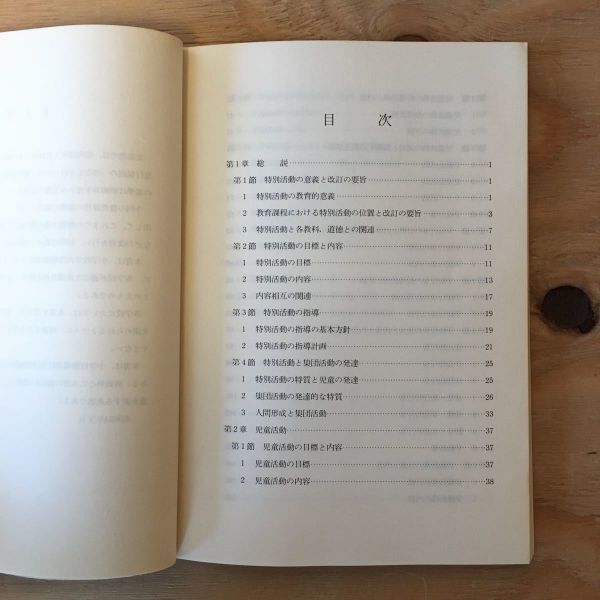 目　次
第1章　総　説……1
第1節　特別活動の意義と改訂の要旨……1
1　特別活動の教育的意義……1
2　教育課程における特別活動の位置と改訂の要旨……3
3　特別活動と各教科、道徳との関連……7
第2節　特別活動の目標と内容……11
1　特別活動の目標……11
2　特別活動の内容……13
3　内容相互の関連……17
第3節　特別活動の指導……19
1　特別活動の指導の基本方針……19
2　特別活動の指導計画……21
第4節　特別活動と集団活動の発達……25
1　特別活動の特質と児童の発達……25
2　集団活動の発達的な特質……26
3　人間形成と集団活動……33
第2章　児童活動……37
第1節　児童活動の目標と内容……37
1　児童活動の目標……37
2　児童活動の内容……38